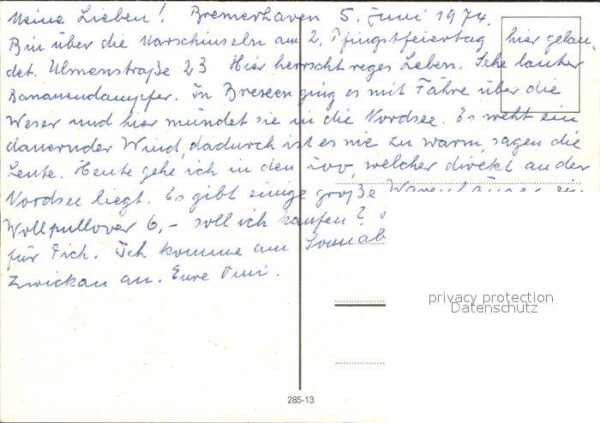 Meine Lieben! Bremerhaven 5. Juni 1974.
Bin über die Marschinseln am 2. Pfingstfeiertag hier gelan-
det. Ulmenstraße 23 Hier herrscht reges Leben. Sehe lauter
Bananendampfer. In Bremen ging es mit Fähre über die
Weser und hier mündet sie in die Nordsee. Es weht ein
dauernder Wind, dadurch ist es nie zu warm, sagen die
Leute. Heute gehe ich in den Zoo, welcher direkt an der
Nordsee liegt. Es gibt einige große Warenhäuser
Wollpullover 6,- soll ich kaufen?
für Dich. Ich komme am Sonnab
Zwickau an. Eure Omi.
privacy protection
Datenschutz
285-13